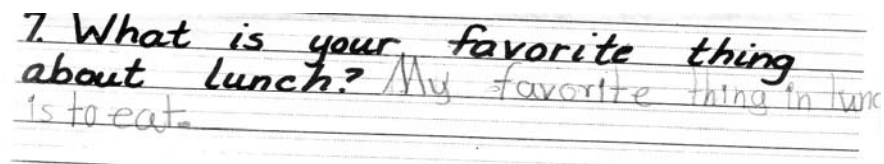 7. What is your favorite thing
about lunch? My favorite thing in lunc
is to eat.